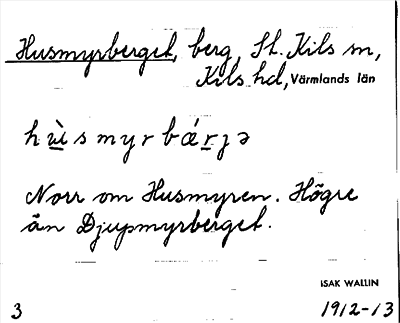 Husmyrberget, berg, St. Kils sn,
Kils hd, Värmlands län
hùsmyrbǽrjə
Norr om Husmyren. Högre
än Djupmyrberget.
ISAK WALLIN
3 1912-13